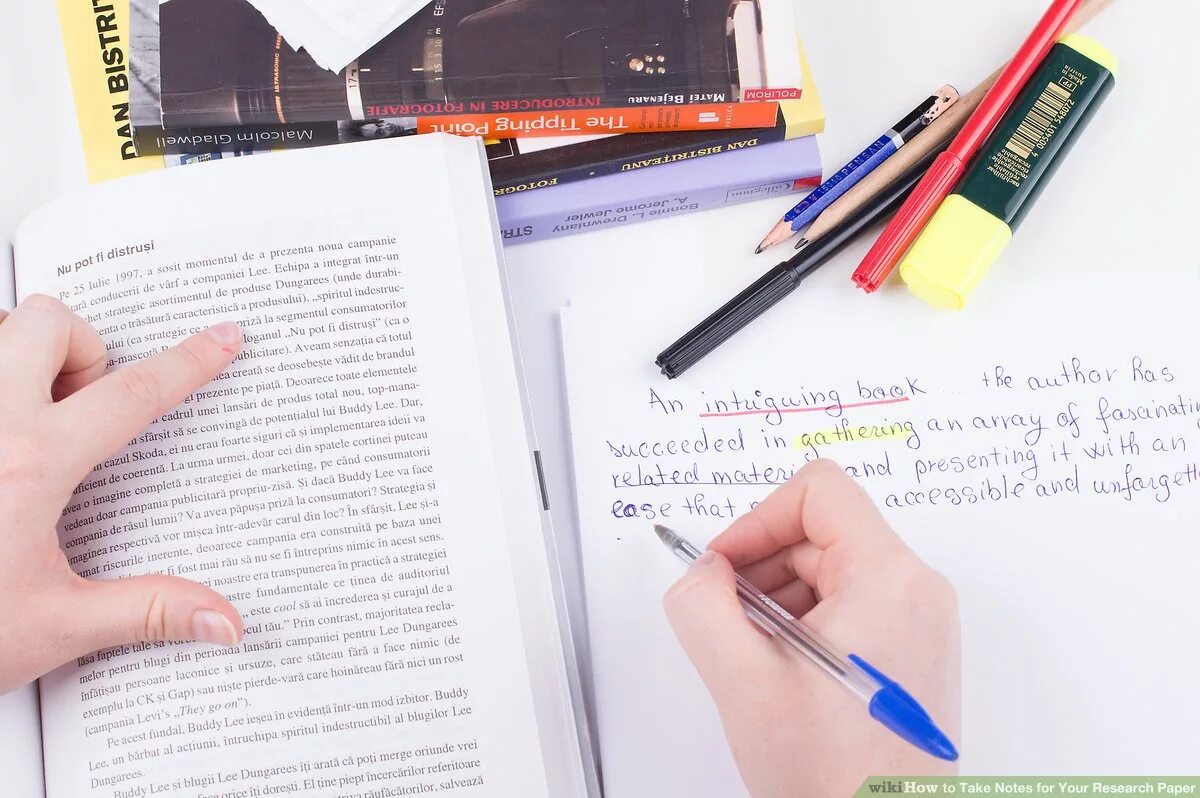 DAN BISTRIT
ULTRASONIC
MATEI BEJENARU
INTRODUCERE IN FOTOGRAFIE
POLIROM
Malcolm Gladwell
The Tipping Point
DAN BISTRIȚEANU
FOTOGRAFY
Bonnie L. Drewniany
A. Jerome Jewler
Collegium
STRA
Made in
Austria
4 005401 548072
nachfüllbar
rechargeable
Nu pot fi distruși
Pe 25 Iulie 1997, a sosit momentul de a prezenta noua campanie
conducerii de vârf a companiei Lee. Echipa a integrat într-un
strategic asortimentul de produse Dungarees (unde durabi-
o trăsătură caracteristică a produsului), „spiritul indestruc-
(ca strategie ce priză la segmentul consumatorilor
loganul „Nu pot fi distruși” (ca o
publicitare). Aveam senzația că totul
creată se deosebește vădit de brandul
prezente pe piață. Deoarece toate elementele
cadrul unei lansări de produs total nou, top-mana-
sfârșit să se convingă de potențialul lui Buddy Lee. Dar,
cazul Skoda, ei nu erau foarte siguri că și implementarea ideii va
de coerentă. La urma urmei, doar cei din spatele cortinei puteau
avea o imagine completă a strategiei de marketing, pe când consumatorii
vedeau doar campania publicitară propriu-zisă. Și dacă Buddy Lee va face
compania de râsul lumii? Va avea păpușa priză la consumatori? Strategia și
imaginea respectivă vor mișca într-adevăr carul din loc? În sfârșit, Lee și-a
mat riscurile inerente, deoarece campania era construită pe baza unei
fi fost mai rău să nu se fi întreprins nimic în acest sens.
noastre era transpunerea în practică a strategiei
fundamentale ce ținea de auditoriul
este cool să ai încrederea și curajul de a
lăsa faptele tale să tău.” Prin contrast, majoritatea recla-
melor pentru blugi din perioada lansării campaniei pentru Lee Dungarees
înfățișau persoane laconice și ursuze, care stăteau fără a face nimic (de
exemplu la CK și Gap) sau niște pierde-vară care hoinăreau fără nici un rost
(campania Levi's „They go on”).
Pe acest fundal, Buddy Lee ieșea în evidență într-un mod izbitor. Buddy
Lee, un bărbat al acțiunii, întruchipa spiritul indestructibil al blugilor Lee
Dungarees.
Buddy Lee și blugii Lee Dungarees îți arată că poți merge oriunde vrei
face orice îți dorești. El ține piept încercărilor referitoare
răufăcătorilor, salvează
An intriguing book ... the author has
succeeded in gathering an array of fascinating
related material and presenting it with an
ease that accessible and unforgett
wiki How to Take Notes for Your Research Paper